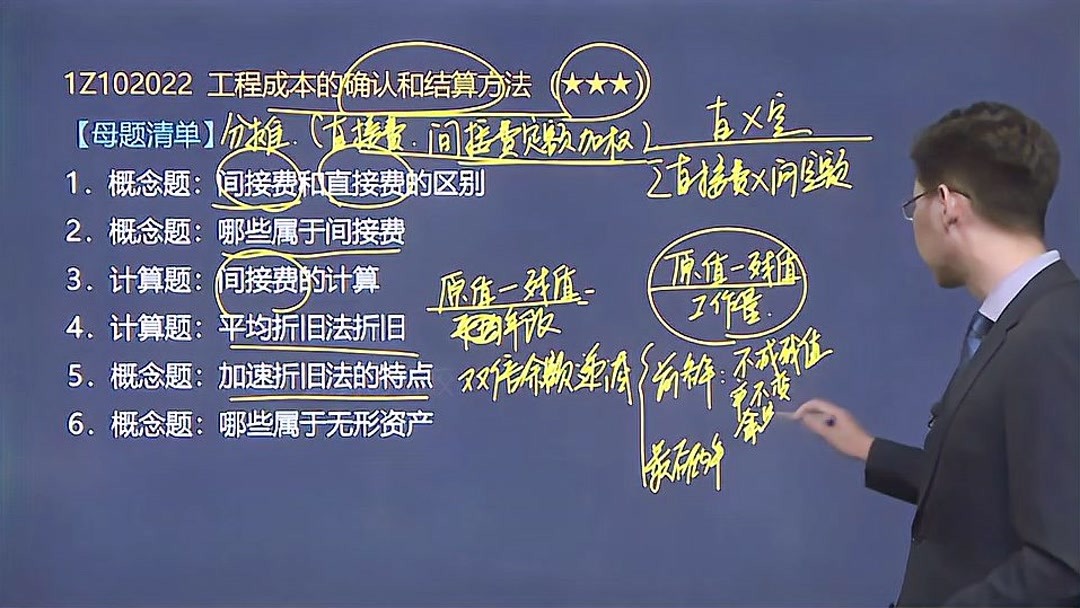 1Z102022 工程成本的确认和结算方法（★★★）
【母题清单】分摊.（直接费.间接费定额加权）
直×定
∑直接费×间定额
1. 概念题：间接费和直接费的区别
2. 概念题：哪些属于间接费
3. 计算题：间接费的计算
原值－残值
年限
原值－残值
工作量.
4. 计算题：平均折旧法折旧
5. 概念题：加速折旧法的特点
双倍余额递减
前几年：不减残值
率不变
最后两年
6. 概念题：哪些属于无形资产